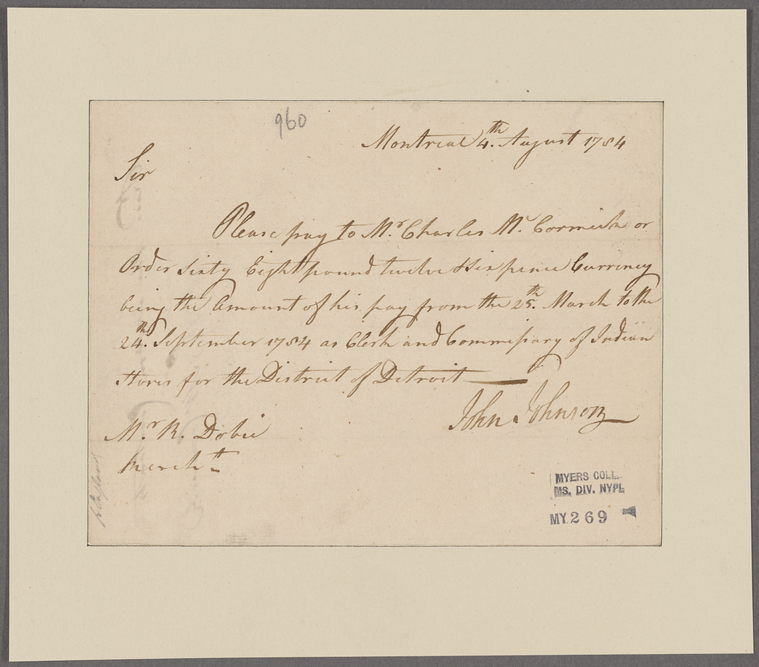 960
Montreal 4th. August 1784
Sir
Please pay to Mr. Charles Mc. Cormick or
Order Sixty Eight pound twelve & Sixpence Currency
being the Amount of his pay from the 25th. March to the
24th. September 1784 as Clerk and Commissary of Indian
Stores for the District of Detroit
John Johnson
Mr. R. Dobie
Mercht.
MYERS COLL.
MS. DIV. NYPL
MY 269